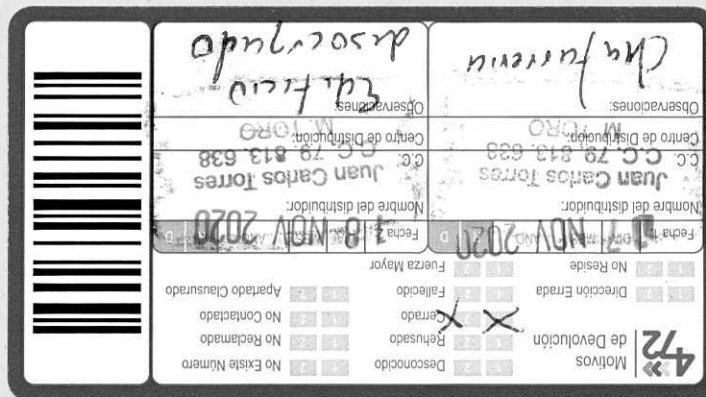 472
Motivos
de Devolución
1 2 Desconocido
1 2 Rehusado
1 2 Cerrado
1 2 Fallecido
1 2 Fuerza Mayor
1 2 No Existe Número
1 2 No Reclamado
1 2 No Contactado
1 2 Apartado Clausurado
1 2 Dirección Errada
1 2 No Reside
Fecha 1: 17 NOV 2020 D
Fecha 2: 18 NOV 2020 D
Nombre del distribuidor:
Juan Carlos Torres
C.C. C.C. 79.813.638
Centro de Distribución:
M. TORO
Observaciones:
Nombre del distribuidor:
Juan Carlos Torres
C.C. C.C. 79.813.638
Centro de Distribución:
M. TORO
Observaciones:
Edificio
desocupado